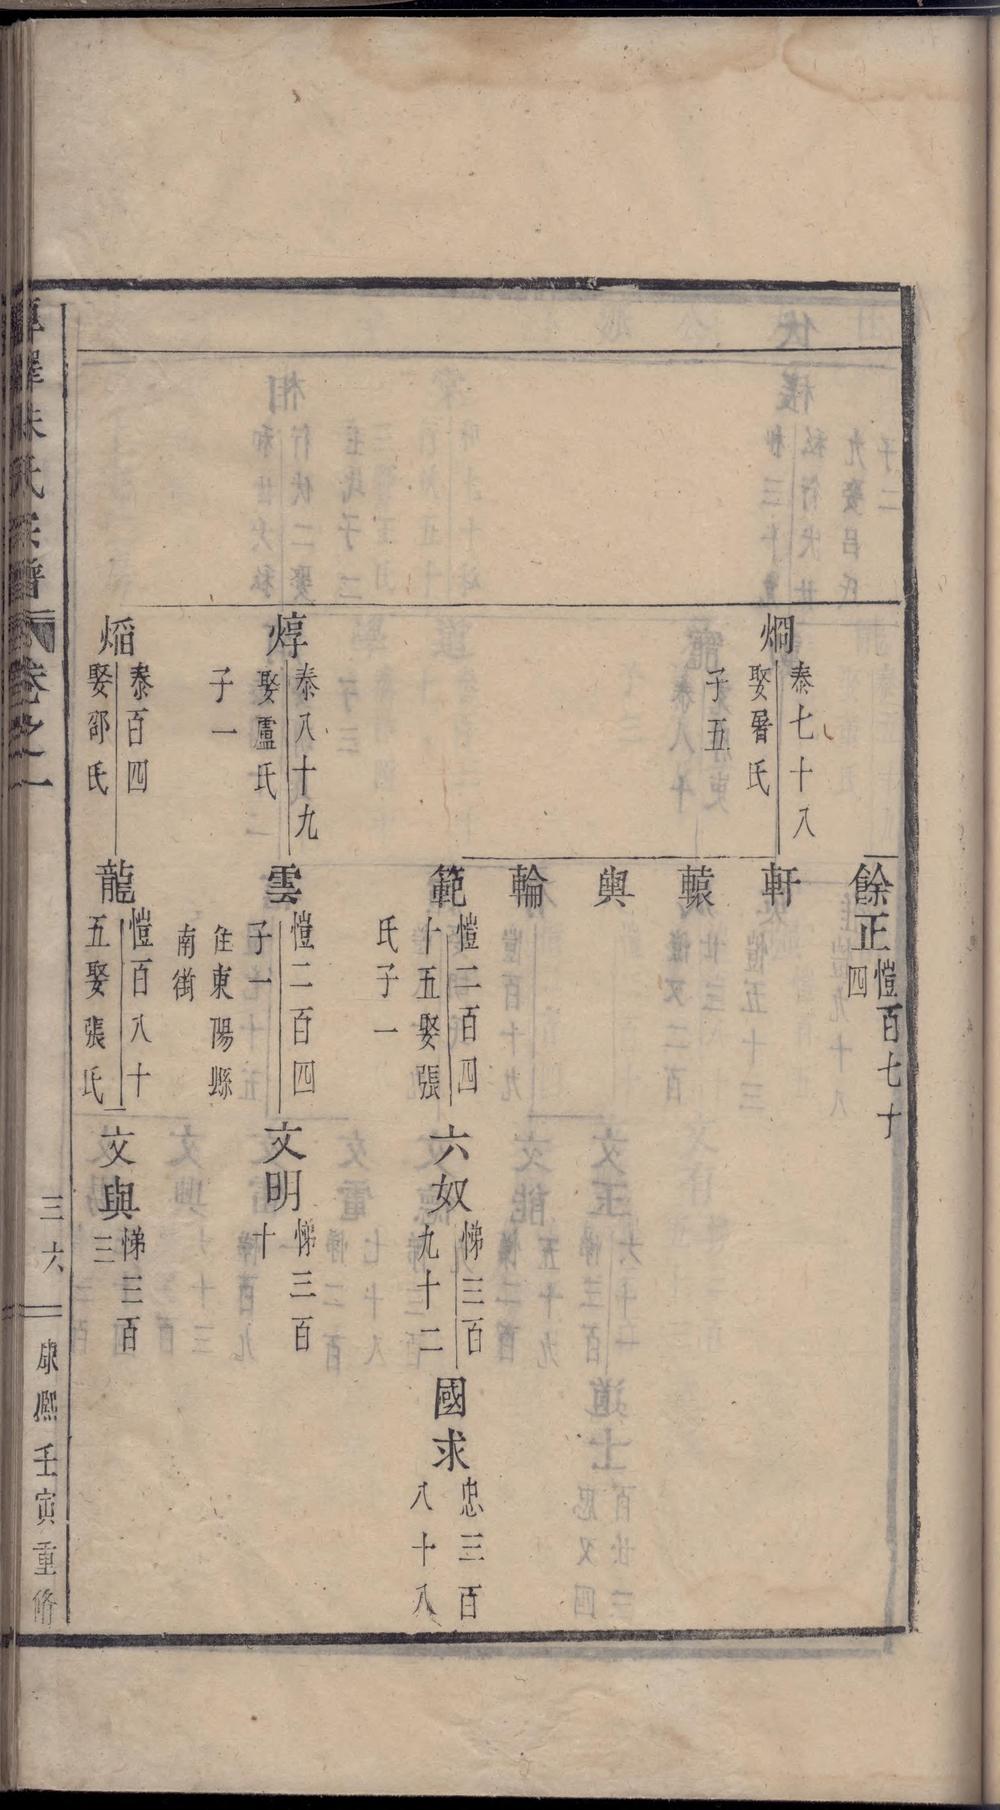 餘正
愷百七十
四
烱
泰七十八
娶暑氏
子五
軒
轅
輿
輪
範
愷二百四
十五娶張
氏子一
六奴
悌三百
九十二
國求
忠三百
八十八
焞
泰八十九
娶盧氏
子一
雲
愷二百四
子一
住東陽縣
南街
文明
悌三百
十
熖
泰百四
娶邵氏
龍
愷百八十
五娶張氏
文與
悌三百
三
朱氏宗譜
卷之一
三六
康熈壬寅重脩